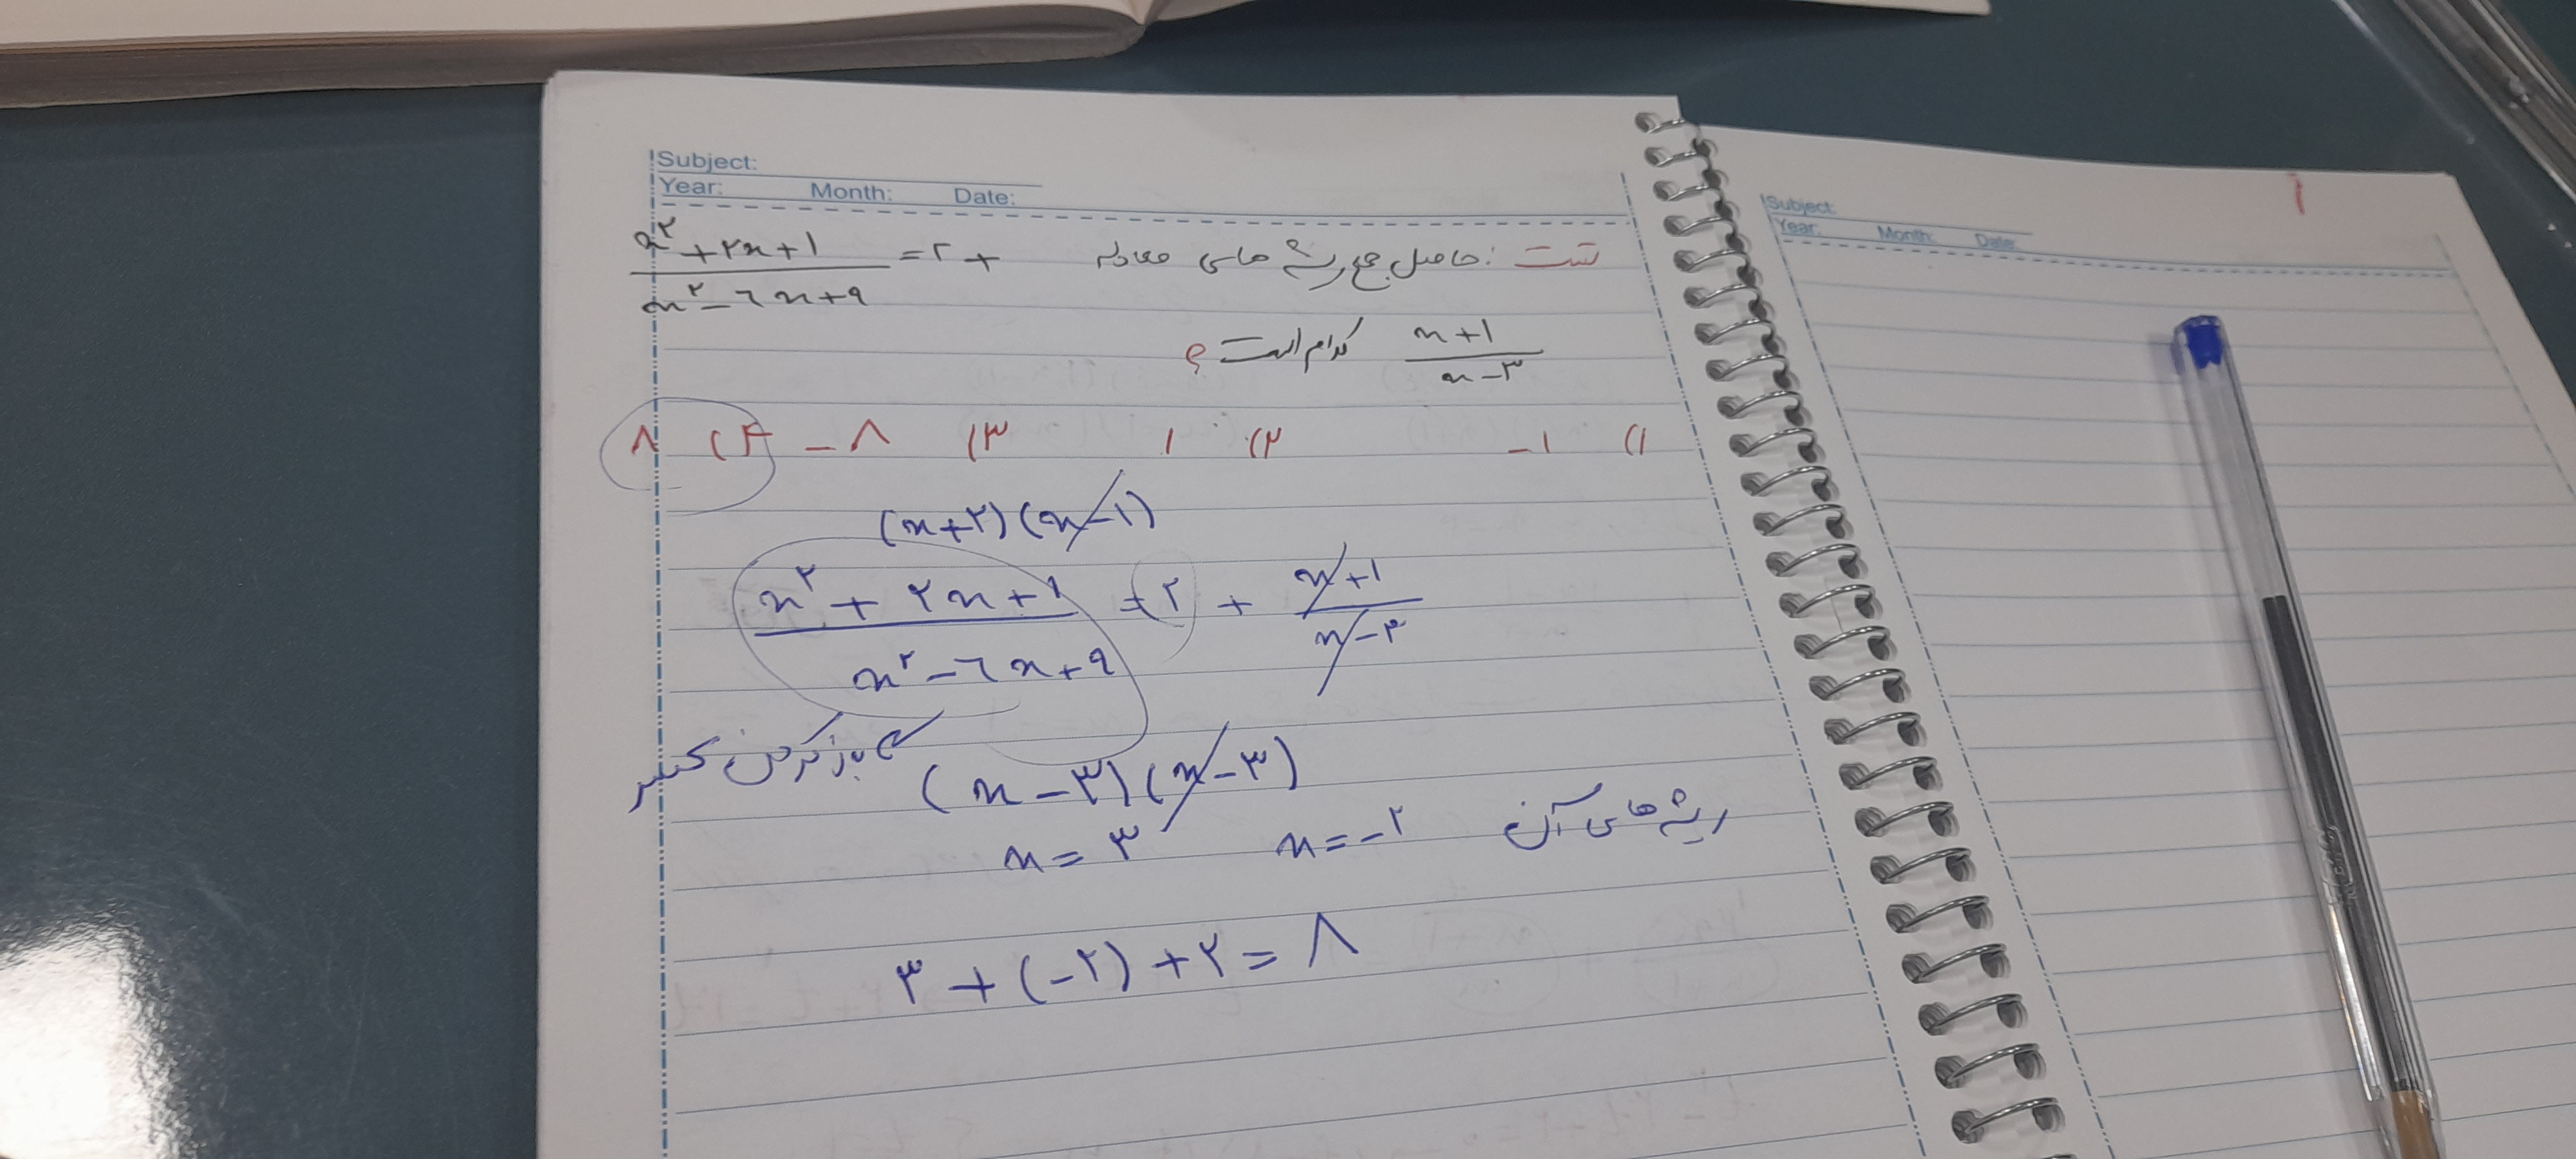 Subject:
Year: Month: Date:
تست: حاصل جمع ریشه های معادله + x²+2x+1 / x²-6x+9 = ۲
x+1 / x-۳ کدام است؟
۱) -۱ ۲) ۱ ۳) -۸ ۴) ۸
(x+۲)(x-1)
x²+۲x+1 / x²-6x+9 = ۲ + x+1 / x-۳
باز کردن کسر
(x-۳)(x-۳)
x=۳ x=-۲ ریشه های آن
۳+(-۲)+۲=۸
Subject:
Year: Month: Date: